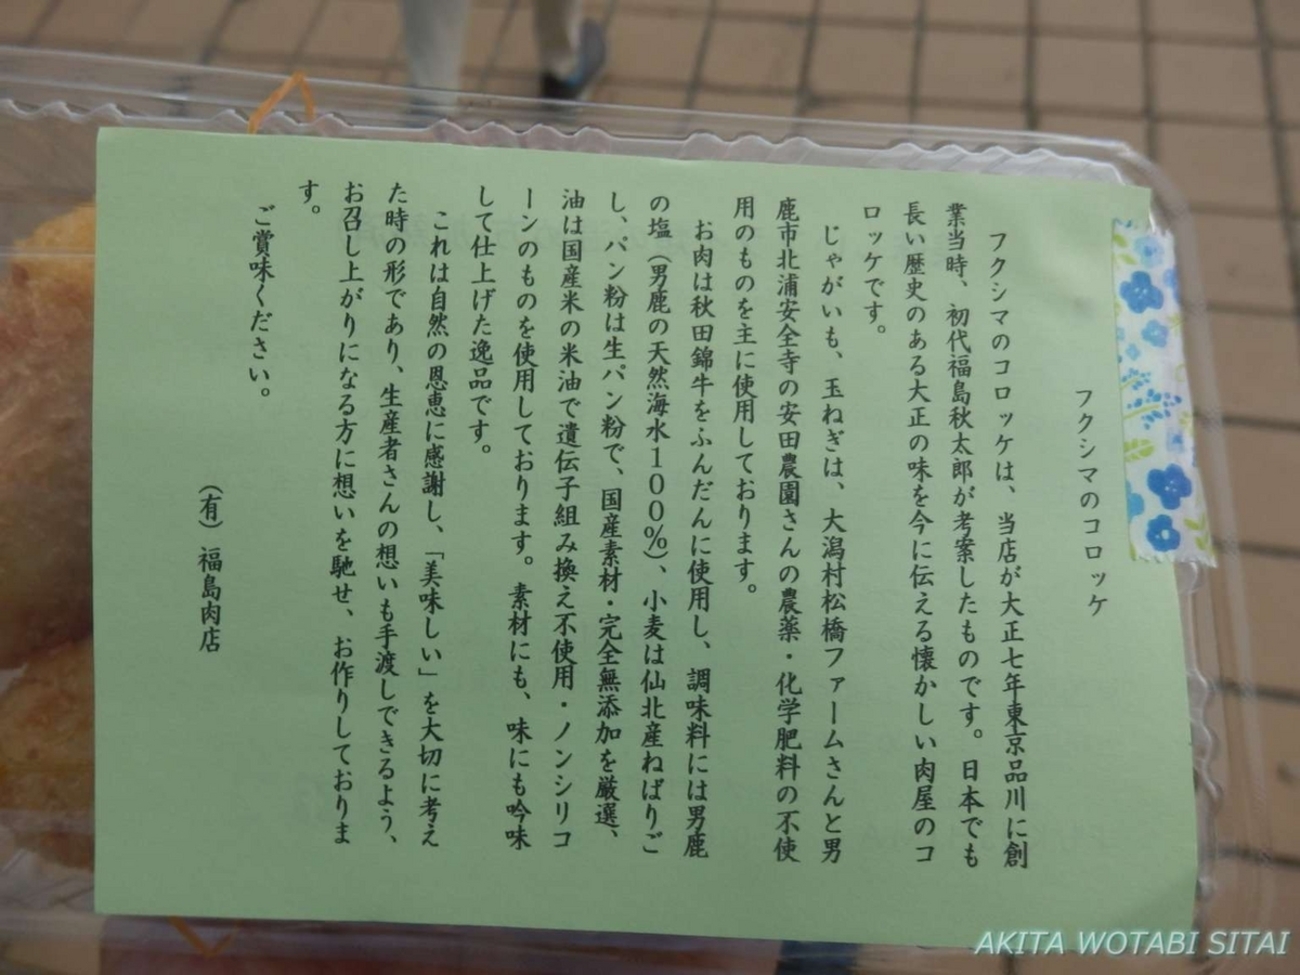 フクシマのコロッケ
フクシマのコロッケは、当店が大正七年東京品川に創
業当時、初代福島秋太郎が考案したものです。日本でも
長い歴史のある大正の味を今に伝える懐かしい肉屋のコ
ロッケです。
じゃがいも、玉ねぎは、大潟村松橋ファームさんと男
鹿市北浦安全寺の安田農園さんの農薬・化学肥料の不使
用のものを主に使用しております。
お肉は秋田錦牛をふんだんに使用し、調味料には男鹿
の塩（男鹿の天然海水１００％）、小麦は仙北産ねばりご
し、パン粉は生パン粉で、国産素材・完全無添加を厳選、
油は国産米の米油で遺伝子組み換え不使用・ノンシリコ
ーンのものを使用しております。素材にも、味にも吟味
して仕上げた逸品です。
これは自然の恩恵に感謝し、「美味しい」を大切に考え
た時の形であり、生産者さんの想いも手渡しできるよう、
お召し上がりになる方に想いを馳せ、お作りしておりま
す。
ご賞味ください。
（有）福島肉店
AKITA WOTABI SITAI